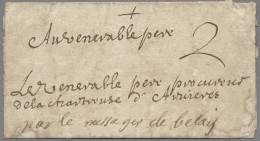 +
Au venerable pere
2
Le Venerable pere procureur
de la chartreuse d'Arvieres
par le messager de belay